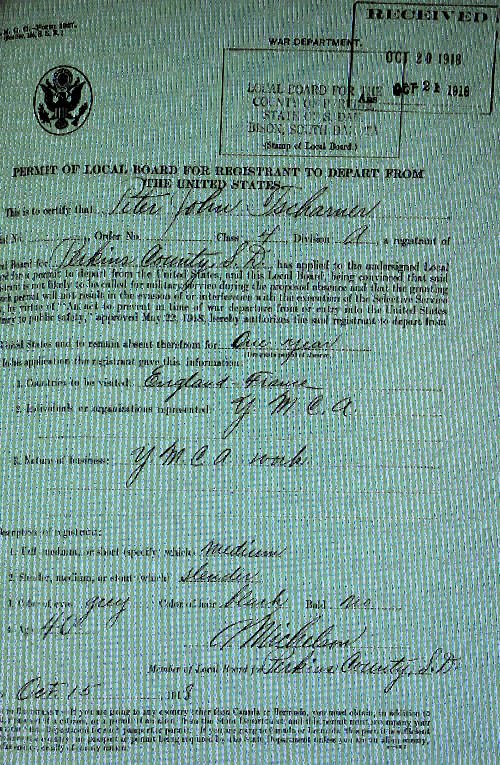 RECEIVED
OCT 20 1918
OCT 21 1918
WAR DEPARTMENT.
LOCAL BOARD FOR THE
COUNTY OF
STATE OF S. DAK.
BISON, SOUTH DAKOTA
(Stamp of Local Board.)
PERMIT OF LOCAL BOARD FOR REGISTRANT TO DEPART FROM
THE UNITED STATES.
This is to certify that Peter John Tscharner
No. , Order No. Class 4 Division A, a registrant of
Board for Perkins County S.D. has applied to the undersigned Local
for a permit to depart from the United States, and this Local Board, being convinced that said
is not likely to be called for military service during the proposed absence and that the granting
such permit will not result in the evasion of or interference with the execution of the Selective Service
by virtue of "An act to prevent in time of war departure from or entry into the United States
to public safety," approved May 22, 1918, hereby authorizes the said registrant to depart from
States and to remain absent therefrom for One year
In his application the registrant gave this information:
1. Countries to be visited: England - France
2. Individuals or organizations represented: Y. M. C. A.
3. Nature of business: Y M C A work
Description of registrant:
1. Tall, medium, or short (specify which) Medium
2. Slender, medium, or stout (which) slender
3. Color of eyes grey Color of hair black Bald no
4. Age
Michelson
Member of Local Board for Perkins County, S.D.
Oct. 15 1918
If you are going to any country other than Canada or Bermuda, you must obtain, in addition to